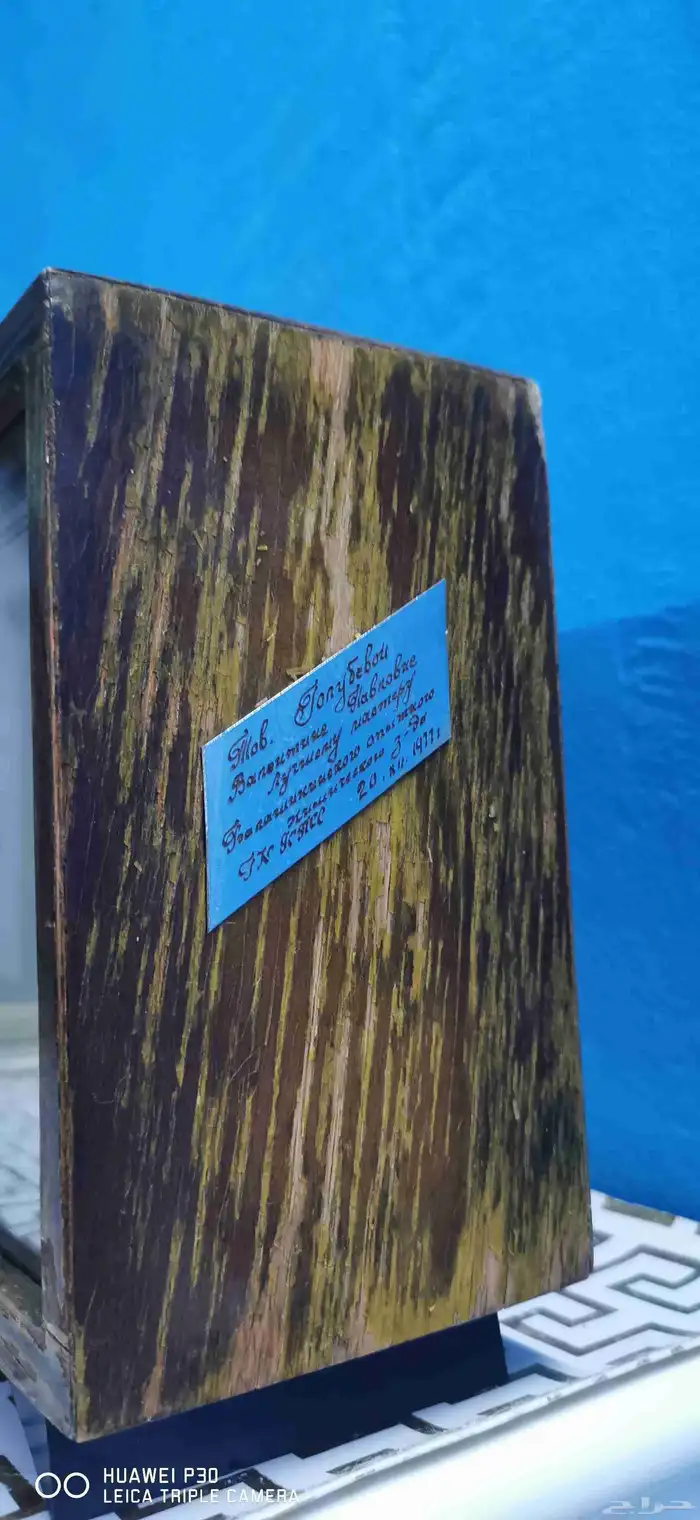 Тов. Голубевой
Валентине Павловне
лучшему мастеру
Балашихинского опытного
химического з-да
ГК КПСС 20.XII.1977г
HUAWEI P30
LEICA TRIPLE CAMERA
حراج